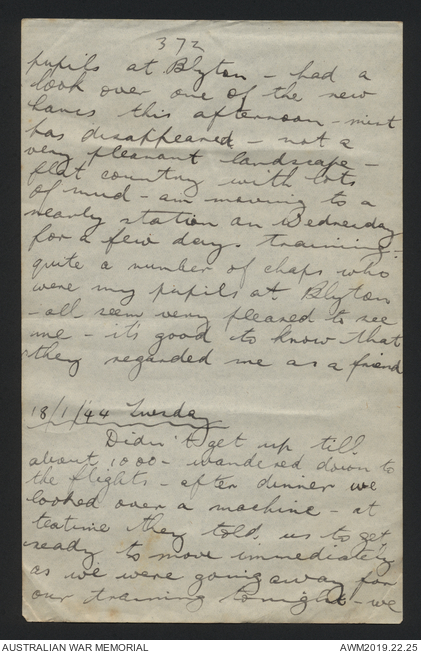 372
pupils at Blyton - had a
look over one of the new
Lancs this afternoon - mist
has disappeared - not a
very pleasant landscape -
flat country with lots
of mud - am moving to a
nearby station on Wednesday
for a few days training -
quite a number of chaps who
were my pupils at Blyton
- all seem very pleased to see
me - it's good to know that
they regarded me as a friend
18/1/44 Tuesday
Didn't get up till
about 1000 - wandered down to
the flights - after dinner we
looked over a machine - at
teatime they told us to get
ready to move immediately
as we were going away for
our training tonight - we
AUSTRALIAN WAR MEMORIAL
AWM2019.22.25